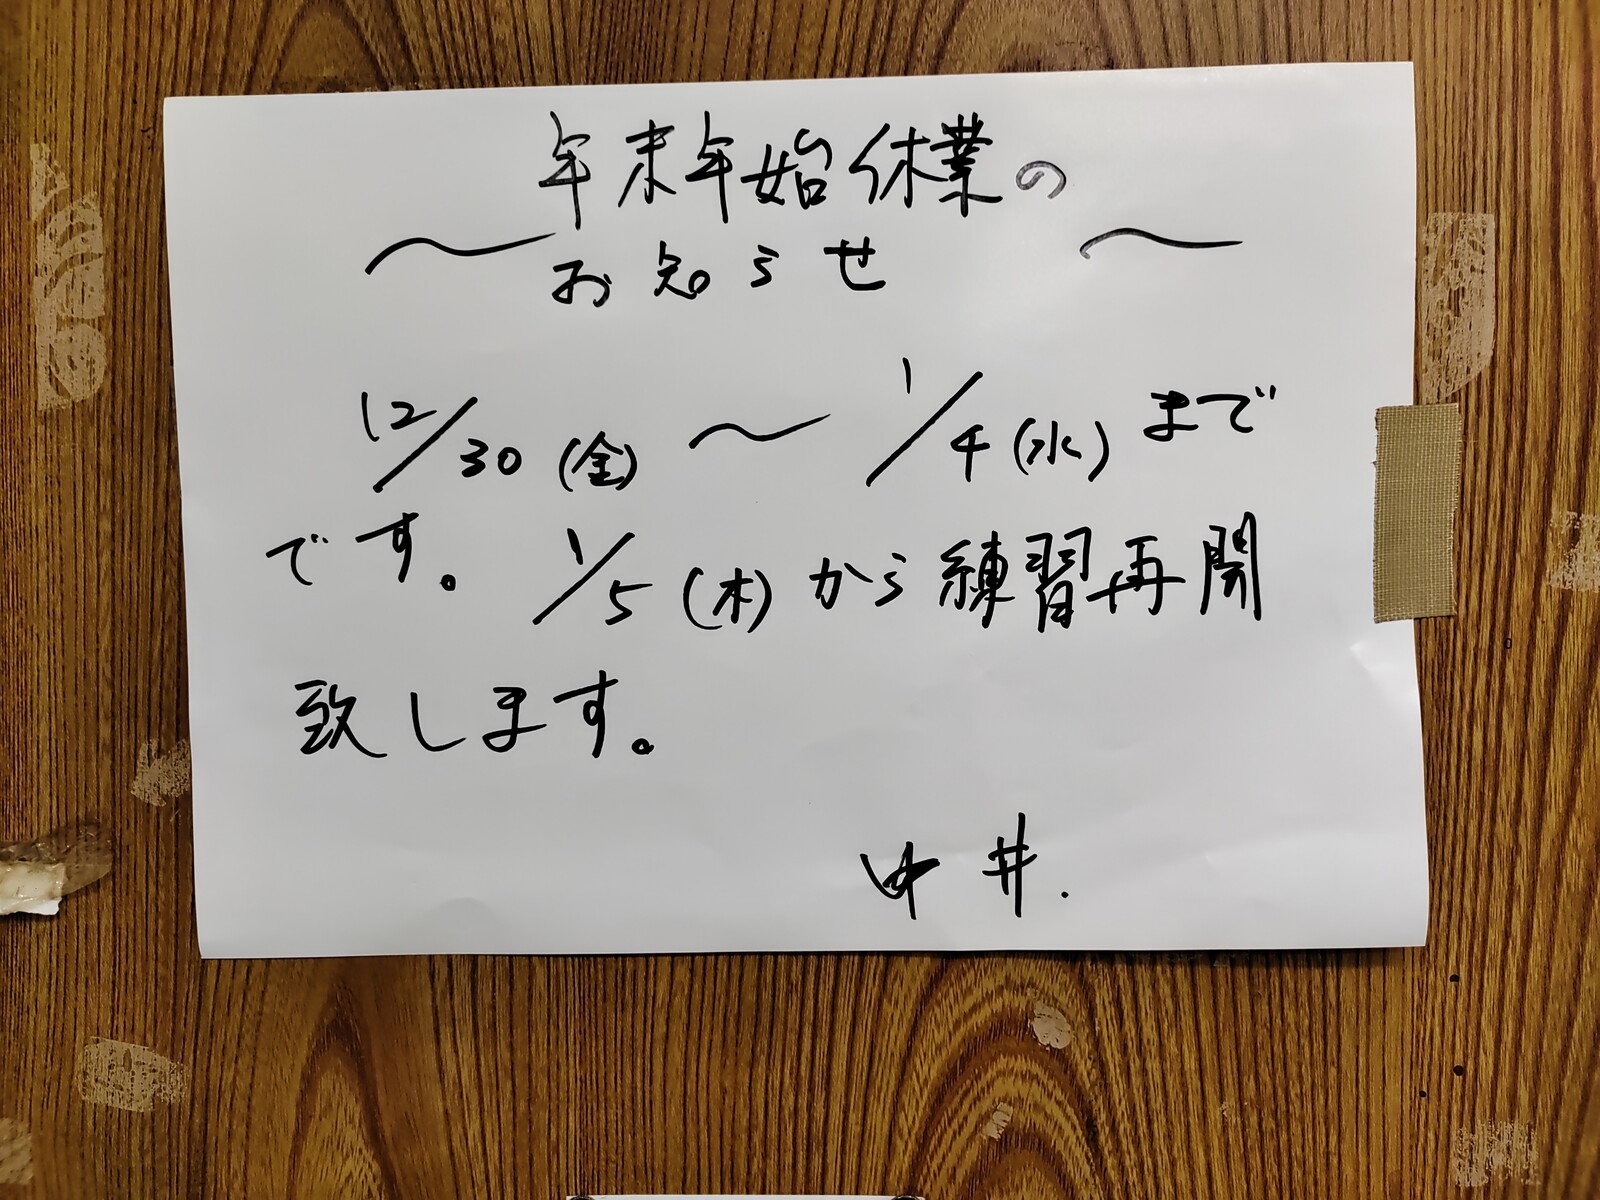 年末年始休業の
〜お知らせ〜
12/30(金)〜1/4(水)まで
です。1/5(木)から練習再開
致します。
中井.